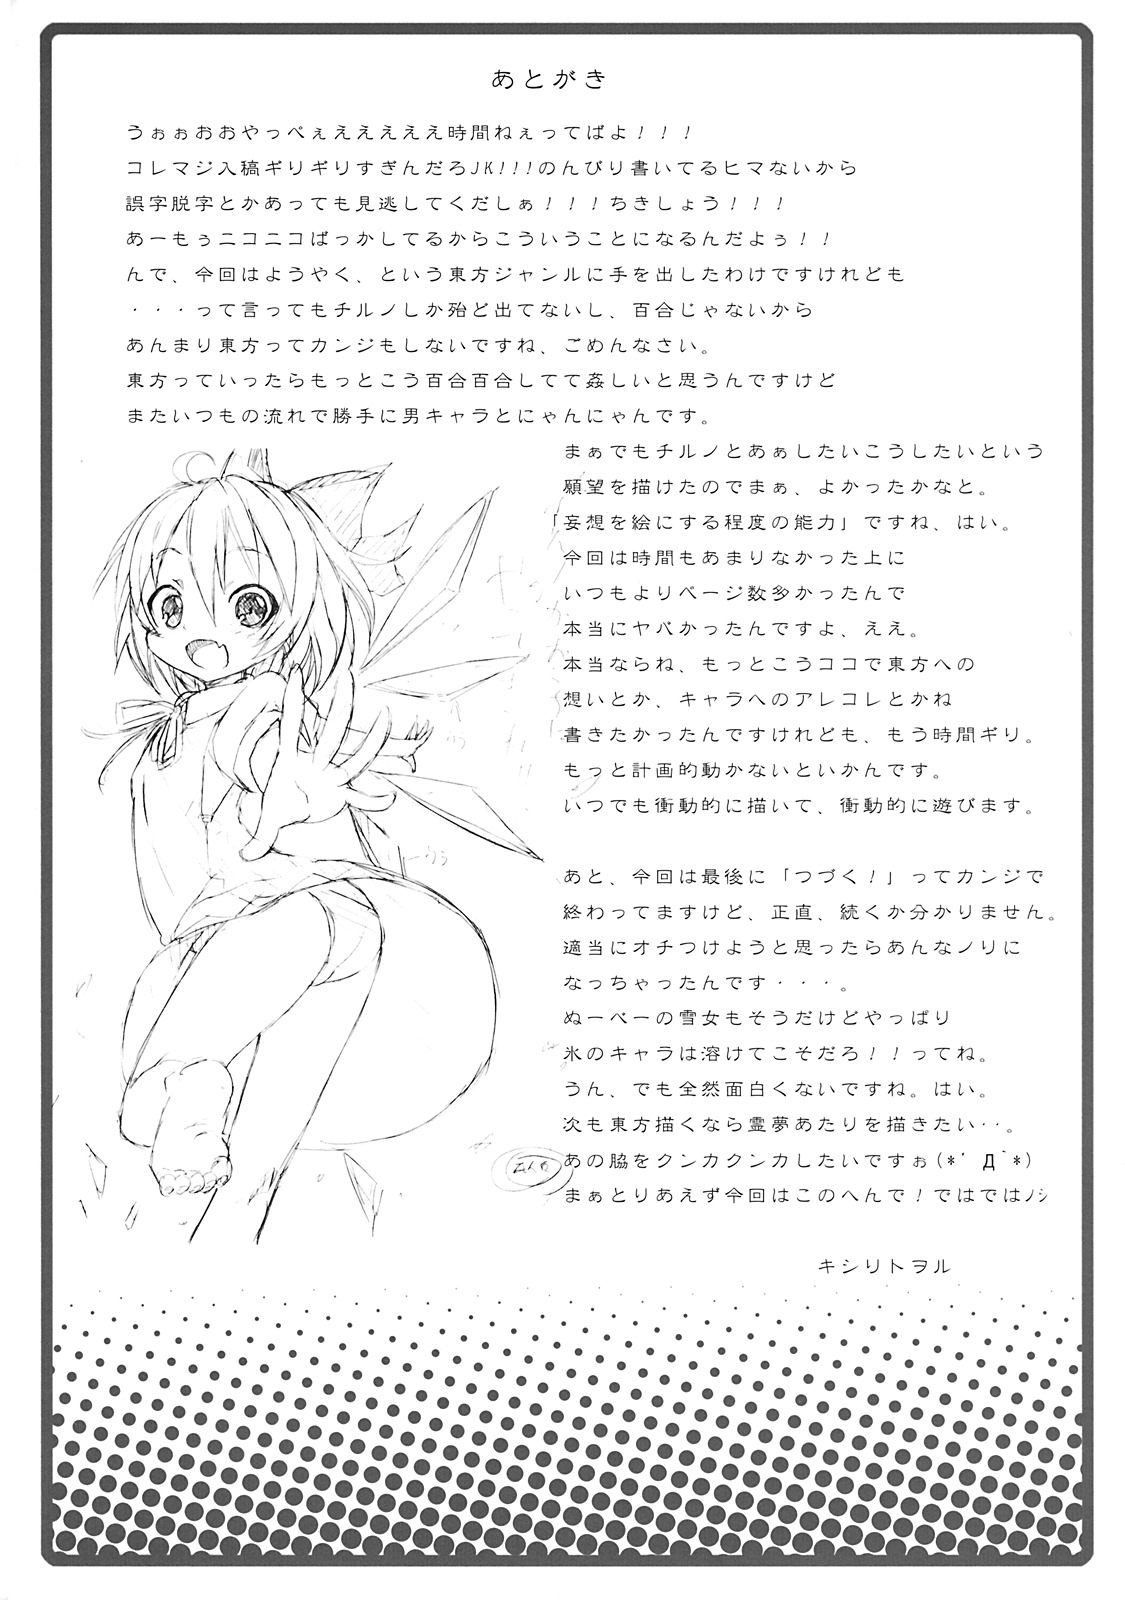 あとがき
うぉぉおおやっべぇえええええ時間ねぇってばよ！！！
コレマジ入稿ギリギリすぎんだろJK!!!のんびり書いてるヒマないから
誤字脱字とかあっても見逃してくだしぁ！！！ちきしょう！！！
あーもぅニコニコばっかしてるからこういうことになるんだよぅ！！
んで、今回はようやく、という東方ジャンルに手を出したわけですけれども
・・・って言ってもチルノしか殆ど出てないし、百合じゃないから
あんまり東方ってカンジもしないですね、ごめんなさい。
東方っていったらもっとこう百合百合してて姦しいと思うんですけど
またいつもの流れで勝手に男キャラとにゃんにゃんです。
まぁでもチルノとあぁしたいこうしたいという
願望を描けたのでまぁ、よかったかなと。
「妄想を絵にする程度の能力」ですね、はい。
今回は時間もあまりなかった上に
いつもよりページ数多かったんで
本当にヤバかったんですよ、ええ。
本当ならね、もっとこうココで東方への
想いとか、キャラへのアレコレとかね
書きたかったんですけれども、もう時間ギリ。
もっと計画的動かないといかんです。
いつでも衝動的に描いて、衝動的に遊びます。
あと、今回は最後に「つづく！」ってカンジで
終わってますけど、正直、続くか分かりません。
適当にオチつけようと思ったらあんなノリに
なっちゃったんです・・・。
ぬーべーの雪女もそうだけどやっぱり
氷のキャラは溶けてこそだろ！！ってね。
うん、でも全然面白くないですね。はい。
次も東方描くなら霊夢あたりを描きたい・・。
あの脇をクンカクンカしたいですぉ(*´Д｀*)
まぁとりあえず今回はこのへんで！ではではﾉｼ
キシリトヲル